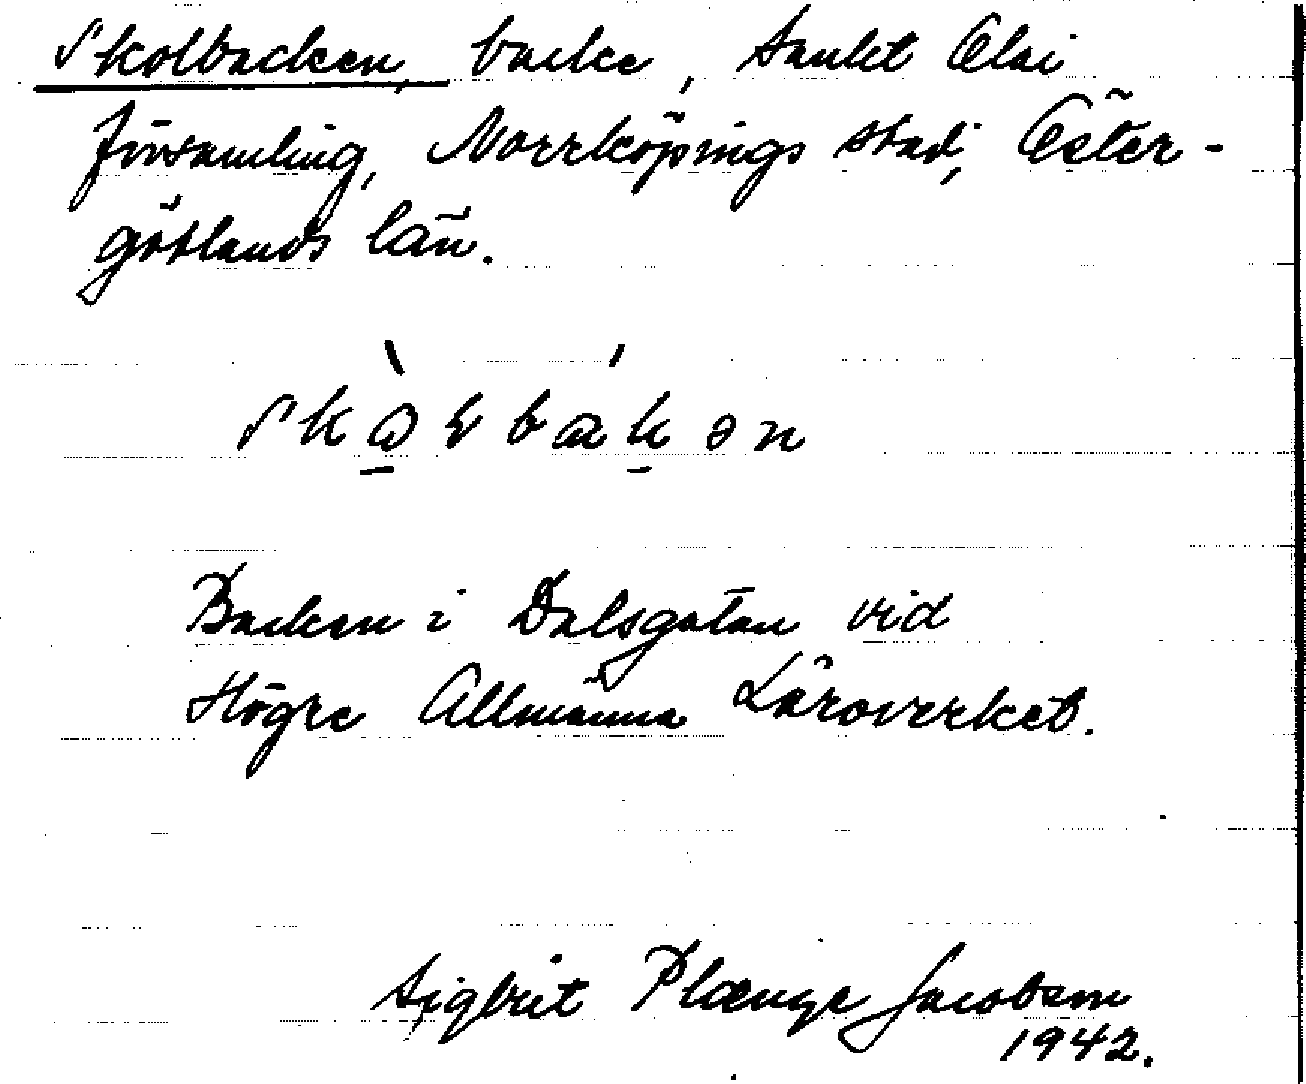 Skolbacken, backe, Sankt Olai
församling, Norrköpings stad, Öster-
götlands län.
Backen i Dalsgatan vid
Högre Allmänna Läroverket.
Sigbrit Plænge Jacobson
1942.